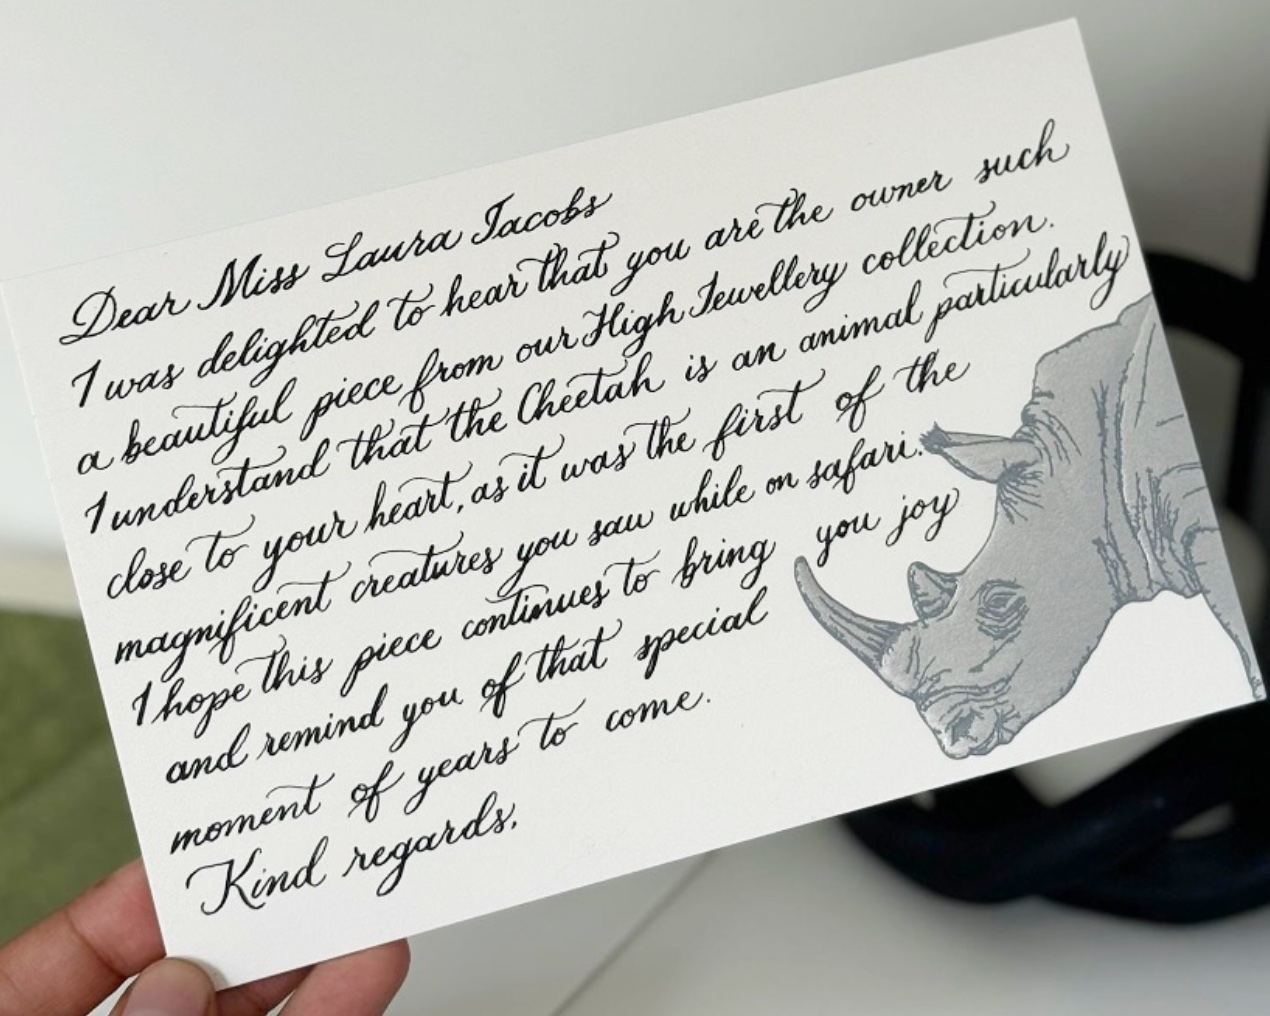 Dear Miss Laura Jacobs
I was delighted to hear that you are the owner such
a beautiful piece from our High Jewellery collection.
I understand that the Cheetah is an animal particularly
close to your heart, as it was the first of the
magnificent creatures you saw while on safari.
I hope this piece continues to bring you joy
and remind you of that special
moment of years to come.
Kind regards,